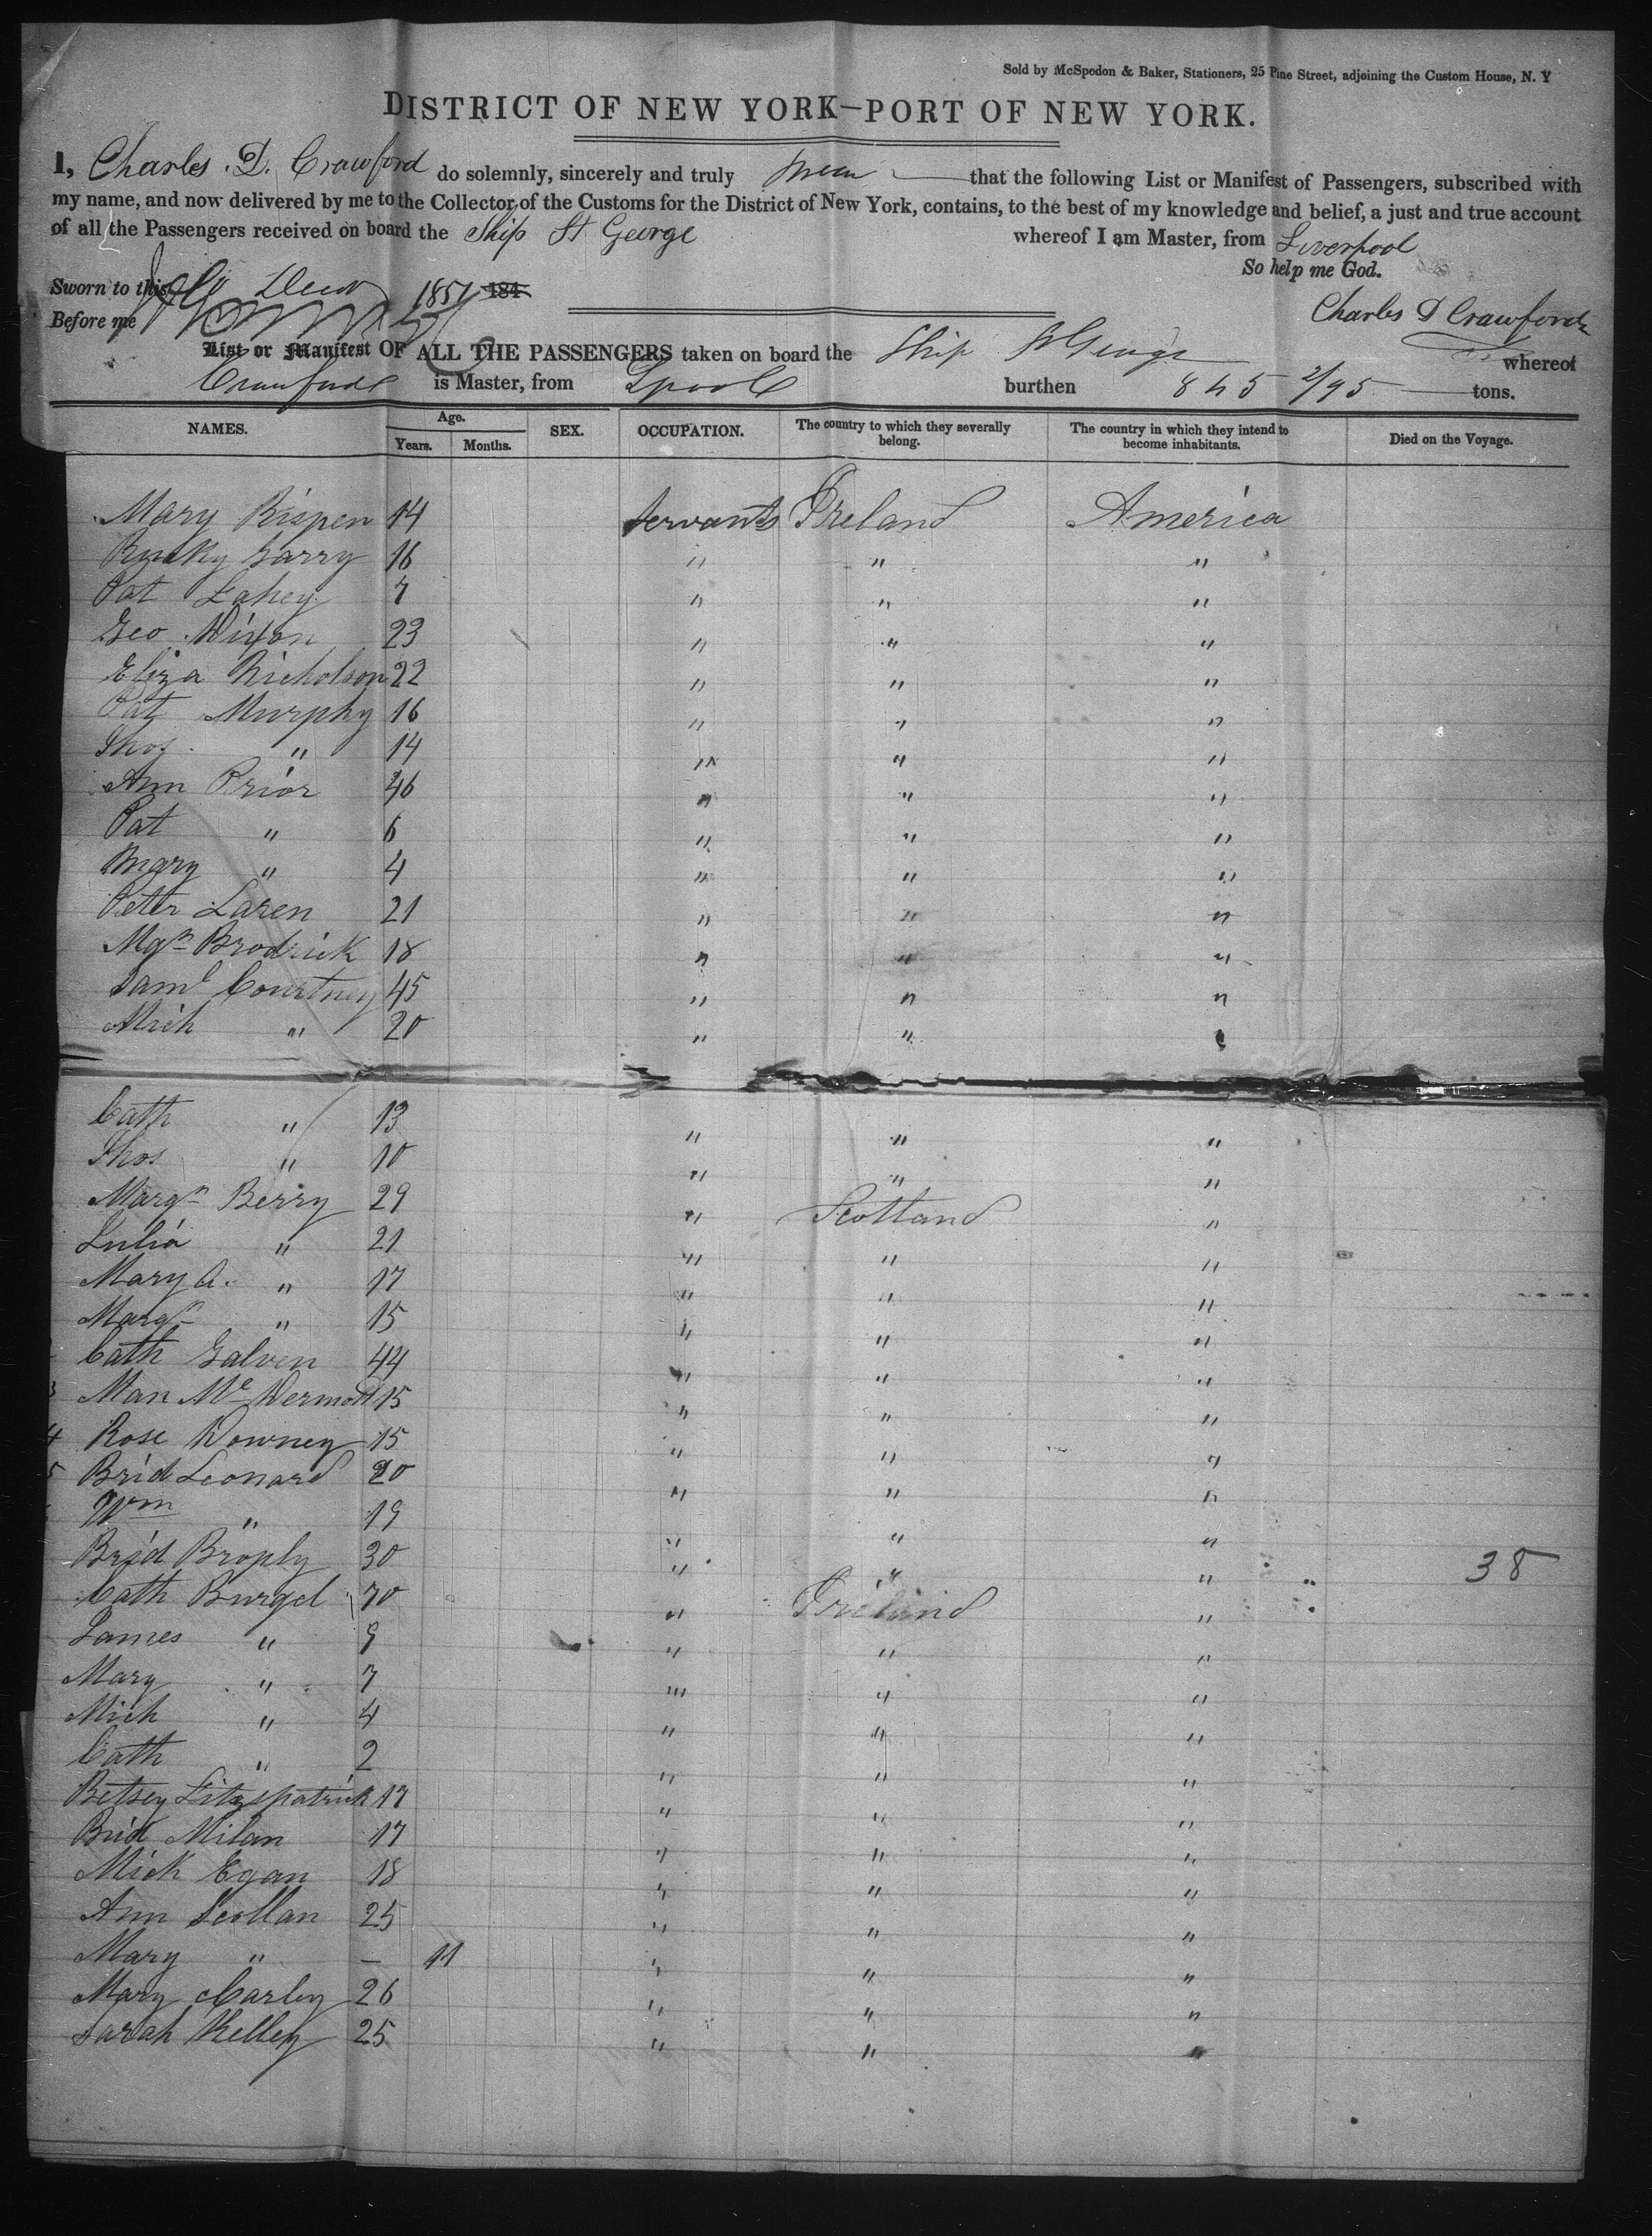 Sold by McSpedon & Baker, Stationers, 25 Pine Street, adjoining the Custom House, N. Y
DISTRICT OF NEW YORK—PORT OF NEW YORK.
I, Charles D. Crawford do solemnly, sincerely and truly swear that the following List or Manifest of Passengers, subscribed with
my name, and now delivered by me to the Collector of the Customs for the District of New York, contains, to the best of my knowledge and belief, a just and true account
of all the Passengers received on board the Ship St George whereof I am Master, from Liverpool
So help me God.
Sworn to this Decr 1851 184
Before me
Charles D Crawford
List or Manifest OF ALL THE PASSENGERS taken on board the Ship St George whereof
Crawford is Master, from Lpool burthen 845 2/95 tons.
NAMES. Age. Years. Months. SEX. OCCUPATION. The country to which they severally belong. The country in which they intend to become inhabitants. Died on the Voyage.
Mary Rispen 14 Servants Ireland America
Garry 16 " " "
Pat Fahey 7 " " "
Geo Dixon 23 " " "
Eliza Nicholson 22 " " "
Pat Murphy 16 " " "
Thos " 14 " " "
Ann Prior 46 " " "
Pat " 6 " " "
Mary " 4 " " "
Peter Laren 21 " " "
Mgn Brodrick 18 " " "
Saml Courtney 45 " " "
Mich " 20 " "
Cath " 13 " " "
Thos " 10 " " "
Margn Berry 29 " Scotland "
Julia " 21 " " "
Mary A. " 17 " " "
Margn " 15 " " "
Cath Galven 44 " " "
3 Man McDermott 15 " " "
4 Rose Downey 15 " " "
5 Brid Leonard 20 " " "
Wm " 19 " " "
Brid Brophy 30 " " " 38
Cath Burgel 70 " Ireland "
James " 9 " " "
Mary " 7 " " "
Mich " 4 " " "
Cath " 2 " " "
Betsey Fitzpatrick 17 " " "
Brid Milan 17 " " "
Mick Egan 18 " " "
Ann Scollan 25 " " "
Mary " — 11 " " "
Mary Carley 26 " " "
Sarah Kelley 25 " " "